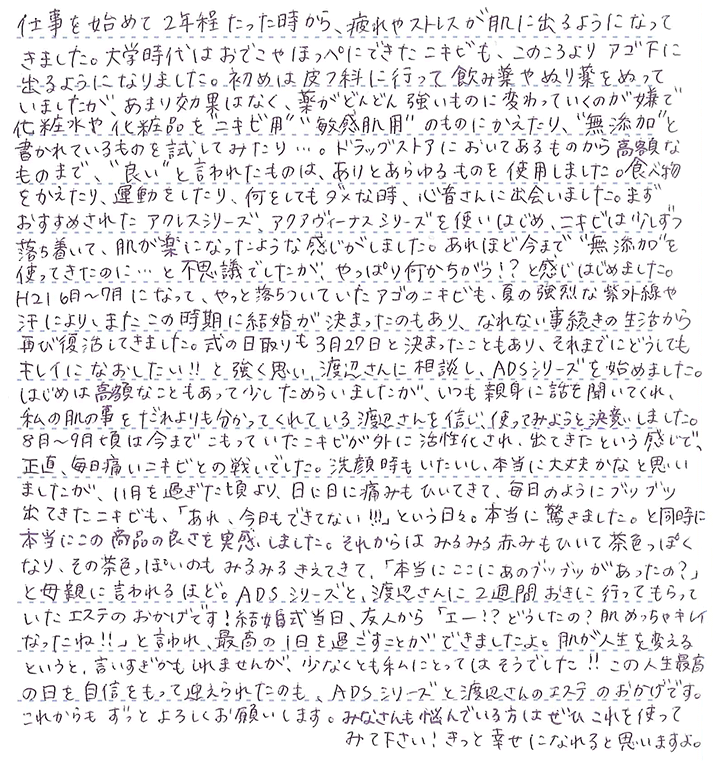 仕事を始めて2年程たった時から、疲れやストレスが肌に出るようになって
きました。大学時代はおでこやほっぺにできたニキビも、このころよりアゴ下に
出るようになりました。初めは皮フ科に行って飲み薬やぬり薬をぬって
いましたが、あまり効果はなく、薬がどんどん強いものに変わっていくのが嫌で
化粧水や化粧品を"ニキビ用""敏感肌用"のものにかえたり、"無添加"と
書かれているものを試してみたり…。ドラッグストアにおいてあるものから高額な
ものまで、"良い"と言われたものは、ありとあらゆるものを使用しました。食べ物
をかえたり、運動をしたり、何をしてもダメな時、心音さんに出会いました。まず
おすすめされたアクレスシリーズ、アクアヴィーナスシリーズを使いはじめ、ニキビは少しずつ
落ち着いて、肌が楽になったような感じがしました。あれほど今まで"無添加"を
使ってきたのに…と不思議でしたが、やっぱり何かちがう!?と感じはじめました。
H21 6月〜7月になって、やっと落ちついていたアゴのニキビも、夏の強烈な紫外線や
汗によりしまたこの時期に結婚が決まったのもあり、なれない事続きの生活から
再び復活してきました。式の日取りも3月27日と決まったこともあり、それまでにどうしても
キレイになおしたい!!と強く思い、渡辺さんに相談し、ADSシリーズを始めました。
はじめは高額なこともあって少しためらいましたが、いつも親身に話を聞いてくれ、
私の肌の事をだれよりも分かってくれている渡辺さんを信じ、使ってみようと決意しました。
8月〜9月頃は今までこもっていたニキビが外に活性化され、出てきたという感じで、
正直、毎日痛いニキビとの戦いでした。洗顔時もいたいし、本当に大丈夫かなと思い
ましたが、11月を過ぎた頃より、日に日に痛みもひいてきて、毎日のようにブツブツ
出てきたニキビも、「あれ、今日もできてない!!!」という日々。本当に驚きました。と同時に
本当にこの商品の良さを実感しました。それからはみるみる赤みもひいて茶色っぽく
なり、その茶色っぽいのもみるみるきえてきて、「本当にここにあのブツブツがあったの?」
と母親に言われるほど。ADSシリーズと、渡辺さんに2週間おきに行ってもらって
いたエステのおかげです!結婚式当日、友人から「エー!?どうしたの?肌めっちゃキレイ
なったね!!」と言われ、最高の1日を過ごすことができましたよ。肌が人生を変える
というと、言いすぎかもしれませんが、少なくとも私にとってはそうでした!!この人生最高
の日を自信をもって迎えられたのも、ADSシリーズと渡辺さんのエステのおかげです。
これからもずっとよろしくお願いします。みなさんも悩んでいる方はぜひこれを使って
みて下さい!きっと幸せになれると思いますよ。